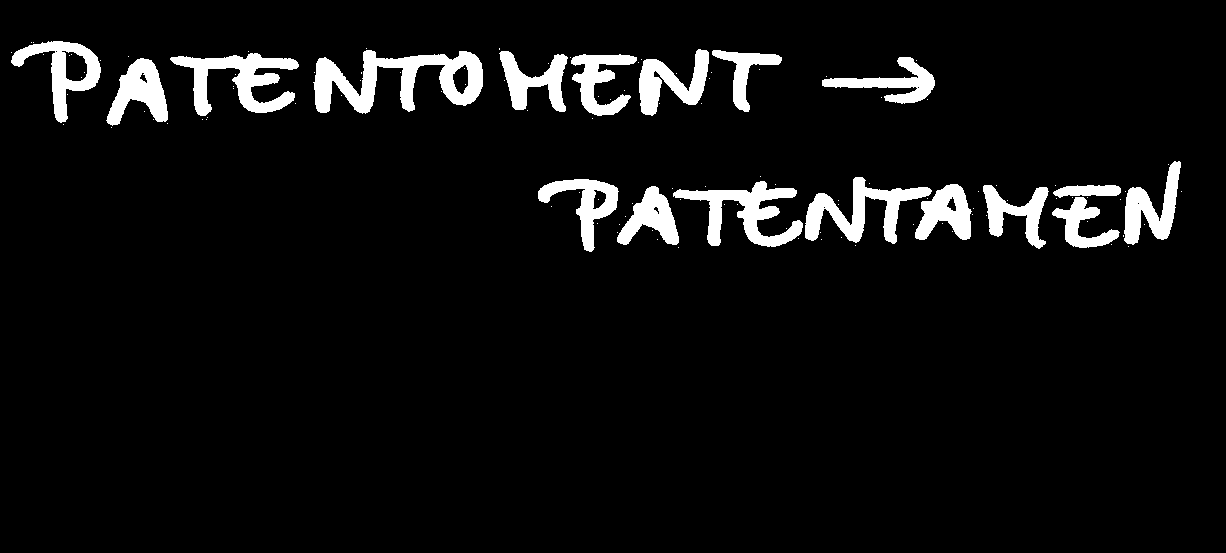 PATENTOMENT →
PATENTAMEN